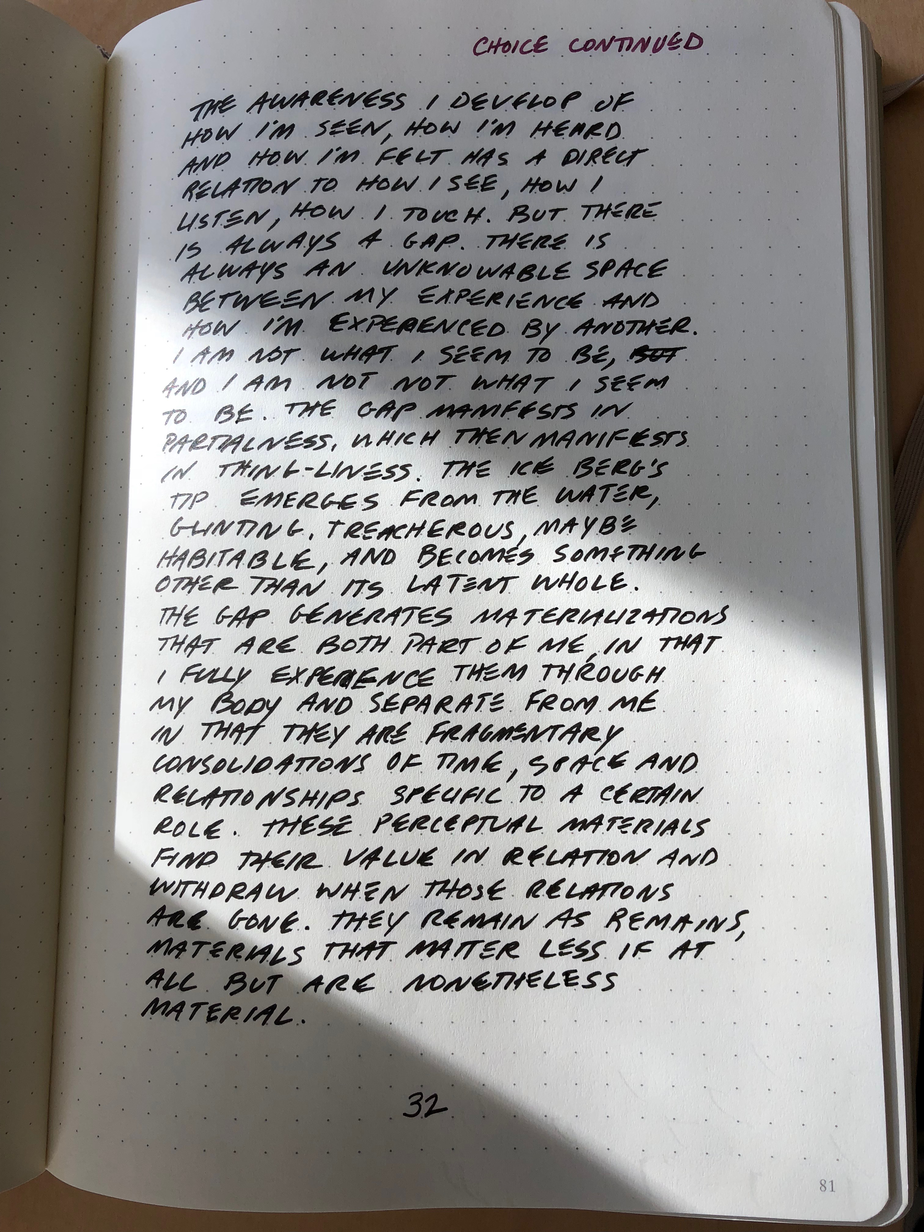 CHOICE CONTINUED
THE AWARENESS I DEVELOP OF
HOW I'M SEEN, HOW I'M HEARD
AND HOW I'M FELT HAS A DIRECT
RELATION TO HOW I SEE, HOW I
LISTEN, HOW I TOUCH. BUT THERE
IS ALWAYS A GAP. THERE IS
ALWAYS AN UNKNOWABLE SPACE
BETWEEN MY EXPERIENCE AND
HOW I'M EXPERIENCED BY ANOTHER.
I AM NOT WHAT I SEEM TO BE, BUT
AND I AM NOT NOT WHAT I SEEM
TO BE. THE GAP MANIFESTS IN
PARTIALNESS, WHICH THEN MANIFESTS
IN THING-LINESS. THE ICE BERG'S
TIP EMERGES FROM THE WATER,
GLINTING, TREACHEROUS, MAYBE
HABITABLE, AND BECOMES SOMETHING
OTHER THAN ITS LATENT WHOLE.
THE GAP GENERATES MATERIALIZATIONS
THAT ARE BOTH PART OF ME, IN THAT
I FULLY EXPERIENCE THEM THROUGH
MY BODY AND SEPARATE FROM ME
IN THAT THEY ARE FRAGMENTARY
CONSOLIDATIONS OF TIME, SPACE AND
RELATIONSHIPS SPECIFIC TO A CERTAIN
ROLE. THESE PERCEPTUAL MATERIALS
FIND THEIR VALUE IN RELATION AND
WITHDRAW WHEN THOSE RELATIONS
ARE GONE. THEY REMAIN AS REMAINS,
MATERIALS THAT MATTER LESS IF AT
ALL BUT ARE NONETHELESS
MATERIAL.
32
81